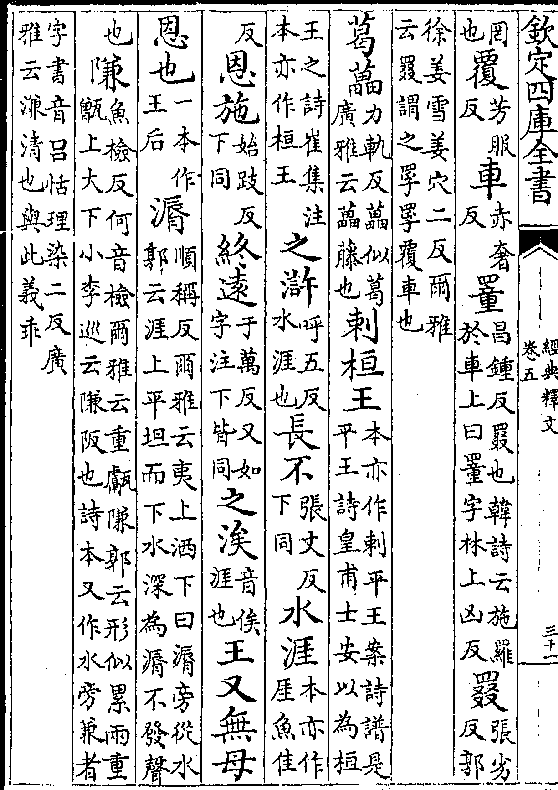 欽定四庫全書
經典釋文
卷五
三十一
罔也覆芳服反車赤奢反罿昌鍾反罬也韓詩云施羅於車上曰罿字林上凶反罬張劣反郭
徐姜雪姜穴二反爾雅云罬謂之罦罦覆車也
葛藟力軌反藟似葛廣雅云藟藤也刺桓王本亦作刺平王案詩譜是平王詩皇甫士安以為桓
王之詩崔集注本亦作桓王之滸呼五反水涯也長不張丈反下同水涯本亦作厓魚佳
反恩施始跂反下同終遠于萬反又如字注下皆同之涘音俟涯也王又無母
恩也一本作王后漘順稱反爾雅云夷上洒下曰漘旁從水郭云涯上平坦而下水深為漘不發聲
也隒魚檢反何音檢爾雅云重甗隒郭云形似累兩重甑上大下小李巡云隒阪也詩本又作水旁兼者
字書音呂恬理染二反廣雅云濂清也與此義乖